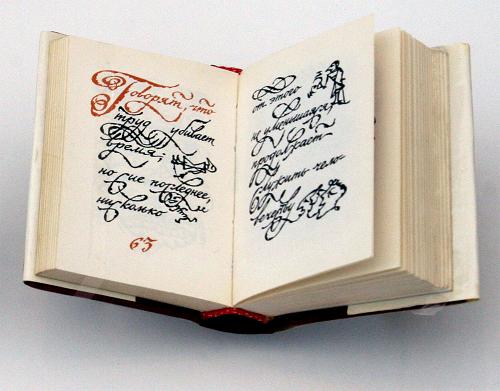 Говорят, что
труд убивает
время;
но сие последнее,
нисколько
63
от этого
не уменьшаяся,
продолжает
служить чело-
вечеству